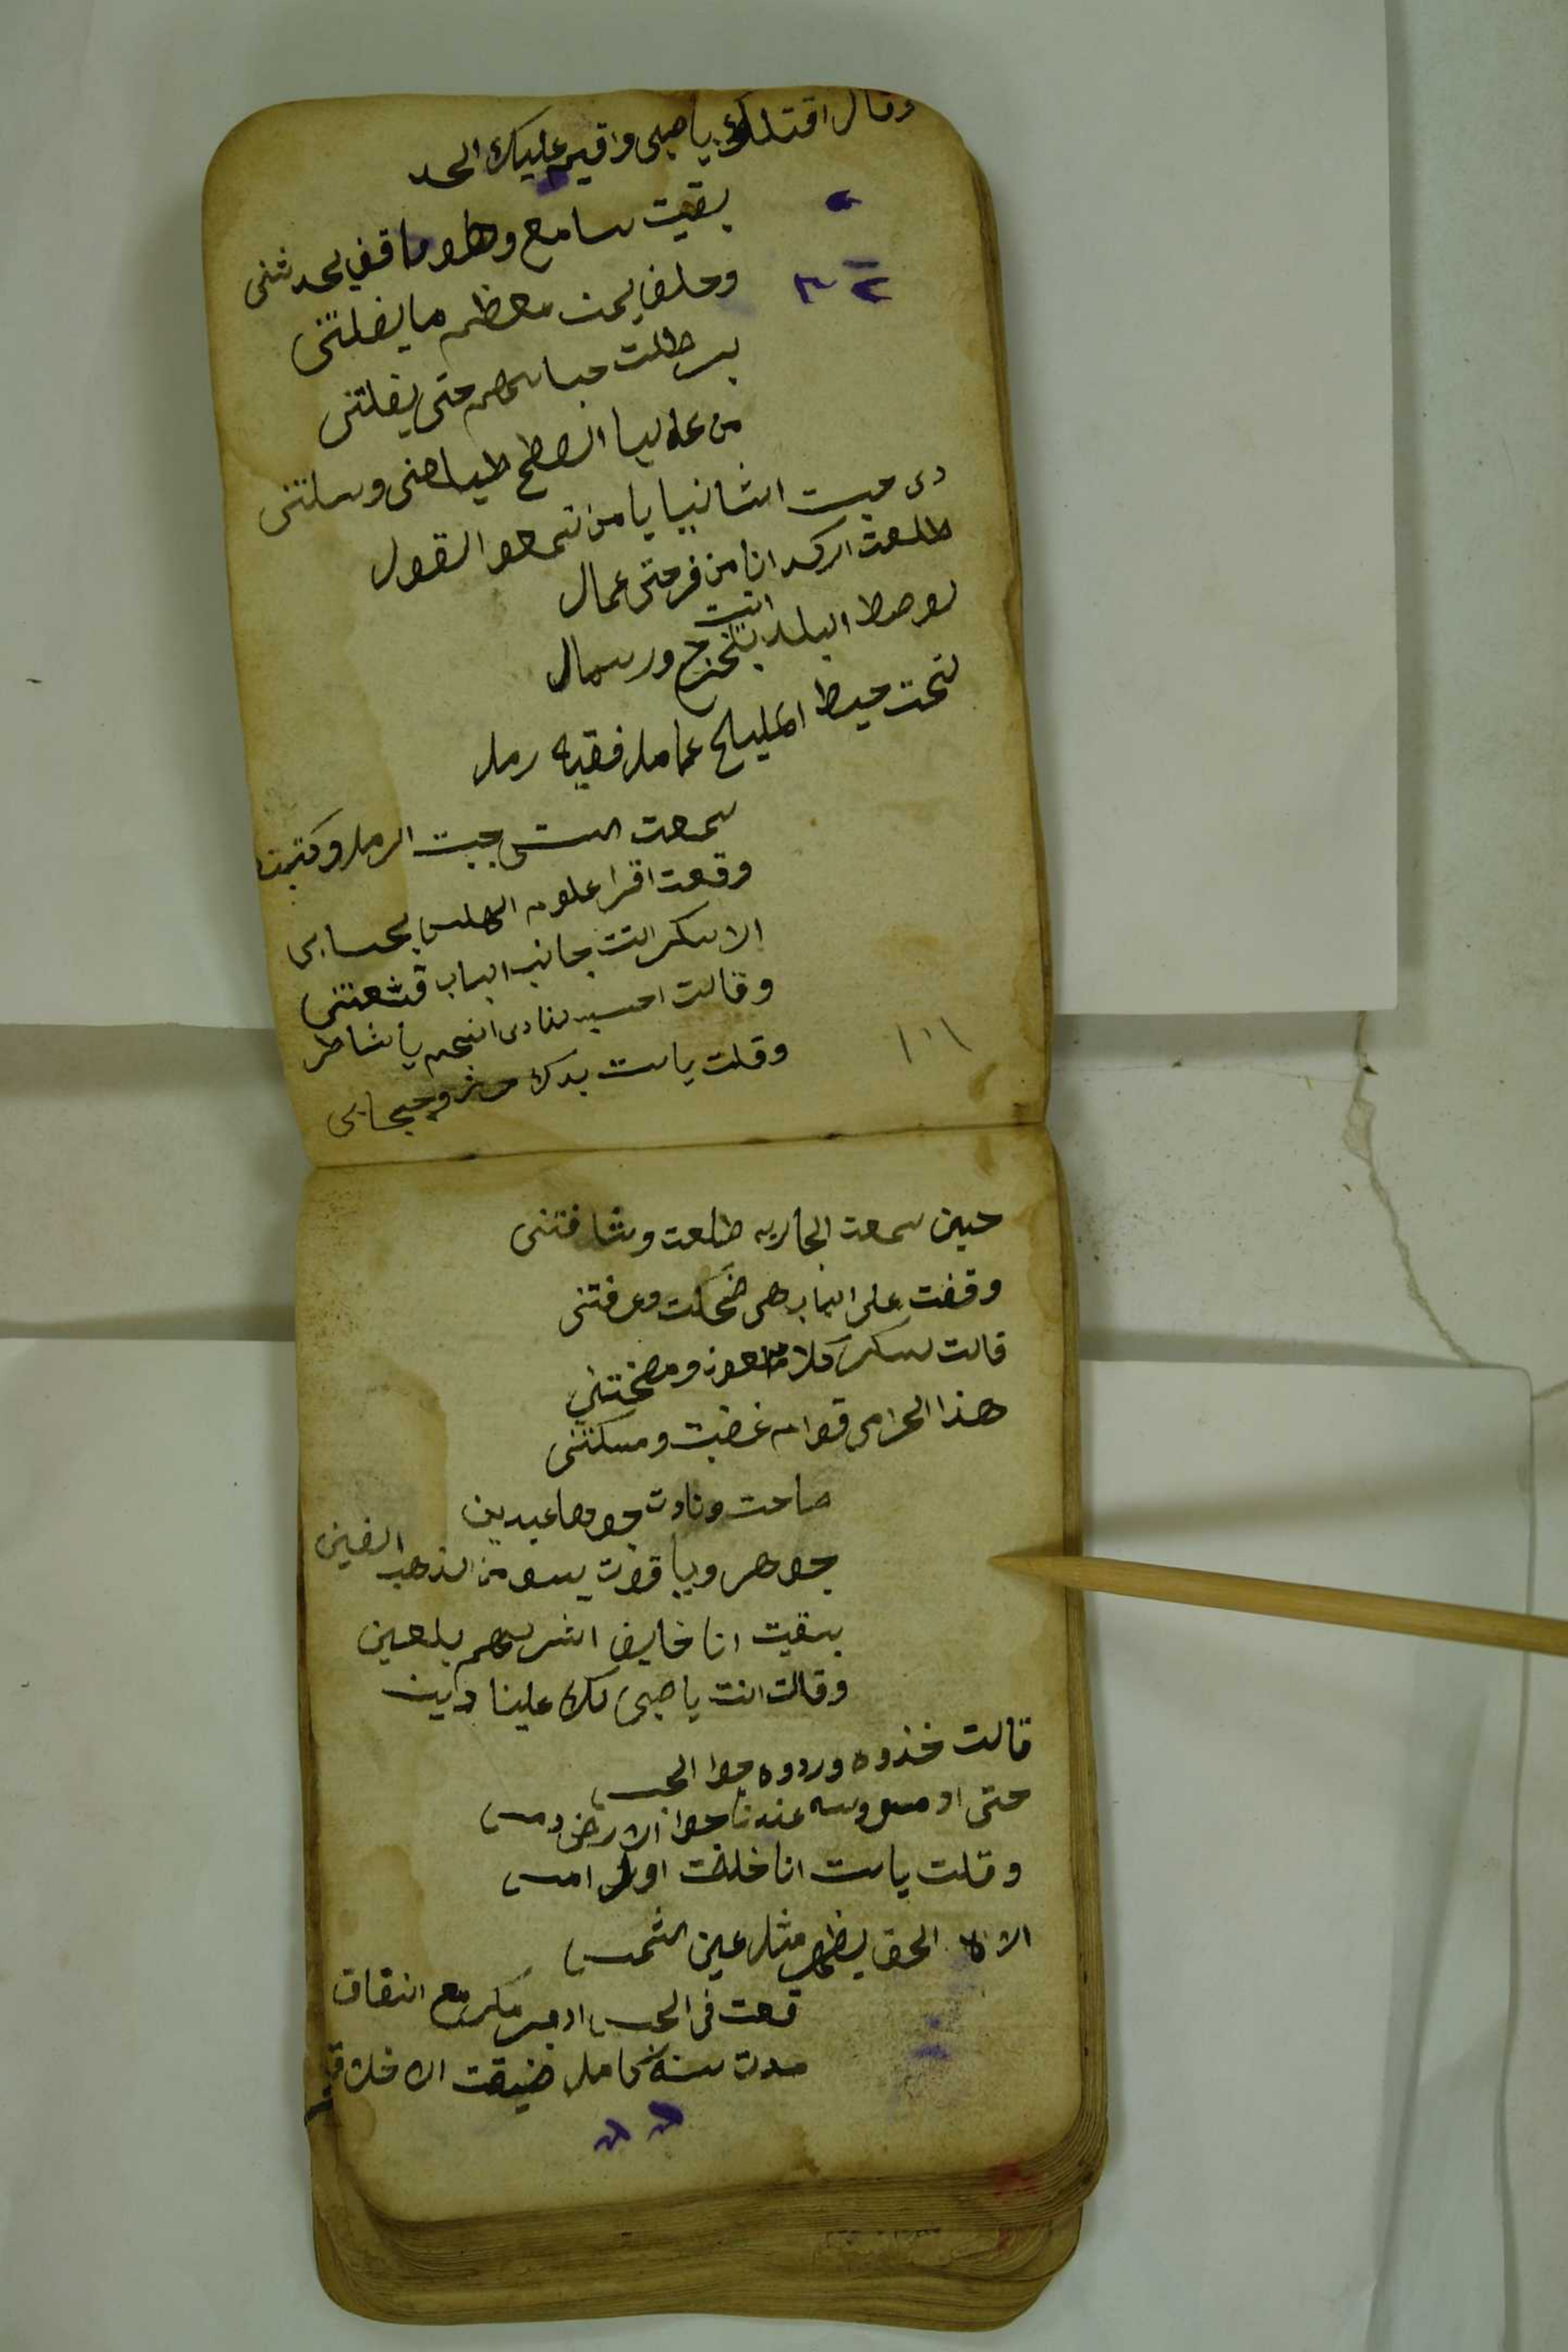 وقال اقتلك يا صبي واقيم عليك الحد
بقيت سامع وهو واقف يحدثني
وحلف يمين معظم ما يفلتني
برطلت حباسهم حتى يفلتني
من عاليا السطح طياحني وسلتني
دى جبت الثانيا يا من تسمعو القول
طلعت اركد انا من فرحتي عمال
لوصط البلد انت ورسمال
تحت حيط المليح عامل فقيه رمل
سمعت الست جبت الرمل وكتبت
وقعت اقرا علوم بحسابى
الا سكر اتت جانب الباب قشعتني
وقالت احسب لنا دى النجم يا شاطر
وقلت يا ست بدك حرز وحجابى
١٠١
حين سمعت الجاريه طلعت وشافتني
وقفت على الباب هي ضحكت وعرفتني
قالت لسكر كلا ملعون
هذا الحرامي قوام غضبت ومسكتني
صاحت ونادت جوها عبدين
جوهر وياقوت يسو من الذهب الفين
بقيت انا خايف انشرهم بلعين
وقالت انت يا صبي لك علينا دين
قالت خذوه وردوه جوا الحبس
حتى عندنا جوا الارض دمس
وقلت يا ست انا خلفت اول امس
الا الحق يظهر مثل عين الشمس
قعت في الحبس ادبر مكر مع انتفاق
مدت سنة كامل ضيقت الاخلاق